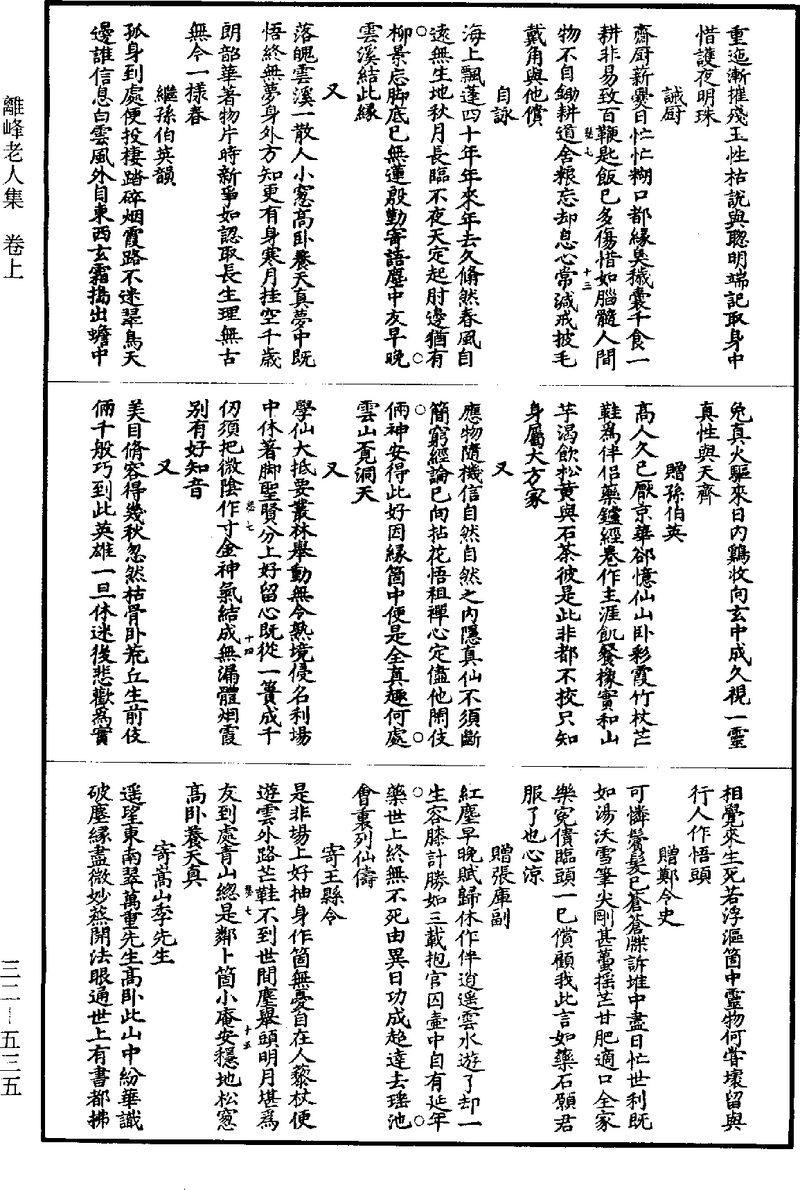 重迤漸摧殘玉性枯說與聰明端記取身中
惜護夜明珠
誡厨
齋厨薪爨日忙忙糊口都緣臭穢囊千食一
耕非易致百鞭匙飯已多傷惜如腦髓人間
物不自鋤耕道舍粮忘却息心常減戒披毛
戴角與他償
自詠
海上飄蓬四十年年來年去久翛然春風自
遠無生地秋月長臨不夜天定起肘邊猶有
柳景忘脚底已無蓮殷勤寄語塵中友早晚
雲溪結此緣
又
落魄雲溪一散人小窓高卧養天真夢中既
悟終無夢身外方知更有身寒月挂空千歲
朗韶華著物片時新爭如認取長生理無古
無令一樣春
繼孫伯英韻
孤身到處便投棲踏碎烟霞路不迷翠鳥天
邊誰信息白雲風外自東西玄霜搗出蟾中
兔真火驅來日内鷄收向玄中成久視一靈
真性與天齊
贈孫伯英
高人久已厭京華却憶仙山卧彩霞竹杖芒
鞋爲伴侣藥鑪經卷作生涯飢餐橡實和山
芋渴飲松黄與石茶彼是此非都不校只知
身屬大方家
又
應物隨機信自然自然之内隱真仙不須斷
簡窮經論已向拈花悟祖禪心定儘他閑伎
倆神安得此好因緣箇中便是全真趣何處
雲山覓洞天
又
學仙大抵要叢林舉動無令熟境侵名利場
中休著脚聖賢分上好留心既從一簣成千
仞須把微陰作寸金神氣結成無漏體烟霞
别有好知音
又
美目脩容得幾秋忽然枯骨卧荒丘生前伎
倆千般巧到此英雄一旦休迷後悲歡爲實
相覺來生死若浮漚箇中靈物何嘗壞留與
行人作悟頭
贈鄭令史
可憐鬢髮已蒼蒼牒訴堆中盡日忙世利既
如湯沃雪筆尖剛甚蠆揺芒甘肥適口全家
樂寃債臨頭一已償顧我此言如藥石願君
服了也心涼
贈張庫副
紅塵早晚賦歸休作伴逍遥雲水遊了却一
生容膝計勝如三載抱官囚壺中自有延年
藥世上終無不死由異日功成超達去瑤池
會裏列仙儔
寄王縣令
是非場上好抽身作箇無憂自在人藜杖便
遊雲外路芒鞋不到世間塵舉頭明月堪爲
友到處青山總是鄰卜箇小庵安穩地松窓
高卧養天真
寄嵩山李先生
遥望東南翠萬重先生高卧此山中紛華識
破塵緣盡微妙蔡開法眼通世上有書都拂
離峰老人集 卷上
三二—五三五